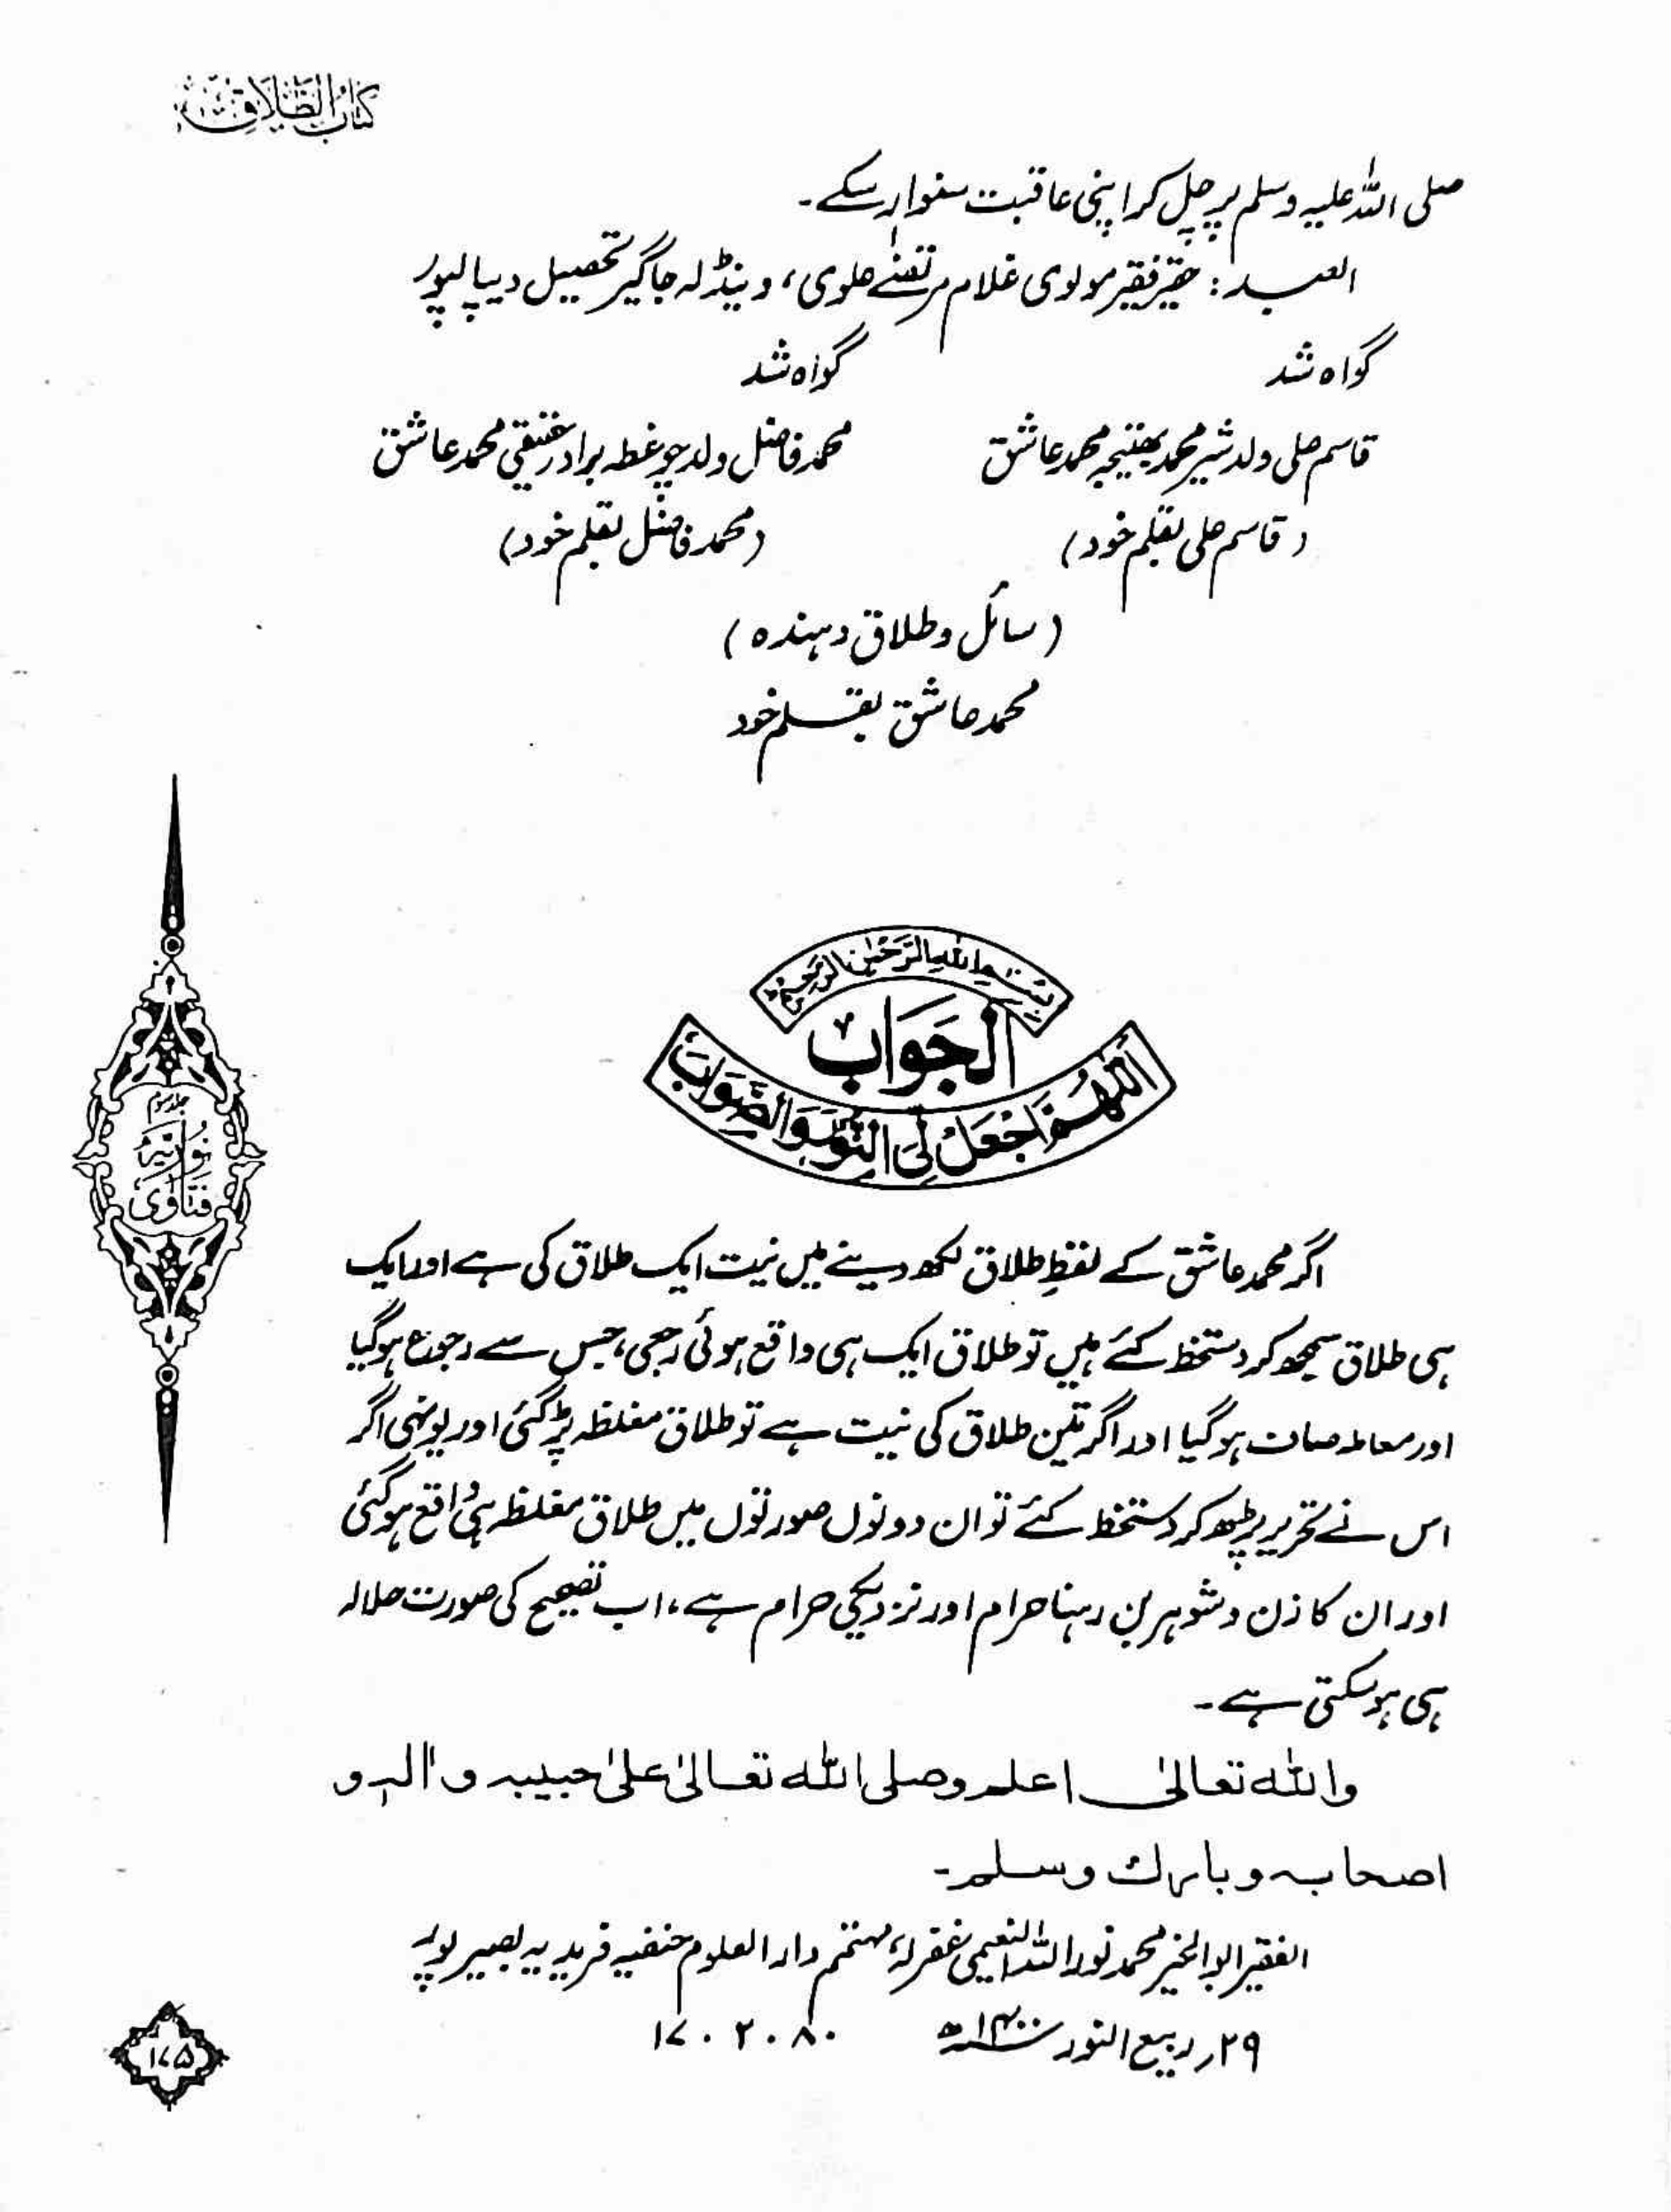 کتاب الطلاق
صلی اللہ علیہ وسلم پر چل کر اپنی عاقبت سنوار سکے۔
العبد : حقیر فقیر مولوی غلام مرتضےٰ علوی، وینڈلہ جاگیر تحصیل دیپالپور
گواہ شد گواہ شد
قاسم علی ولد شیر محمد بھتیجہ محمد عاشق محمد فاضل ولد چوغطہ برادر حقیقی محمد عاشق
(قاسم علی بقلم خود) (محمد فاضل بقلم خود)
(سائل و طلاق دہندہ)
محمد عاشق بقلم خود
بسم اللہ الرحمٰن الرحیم
الجَوَابُ
اَللّٰهُمَّ اجْعَلْ لِیَ النُّوْرَ وَالصَّوَابَ
جلد سوم
نُوریّہ
فتَاوٰی
اگر محمد عاشق کے لفظِ طلاق لکھ دینے میں نیت ایک طلاق کی ہے اور ایک
ہی طلاق سمجھ کر دستخط کئے ہیں تو طلاق ایک ہی واقع ہوئی رجعی، جس سے رجوع ہوگیا
اور معاملہ صاف ہوگیا اور اگر تین طلاق کی نیت ہے تو طلاق مغلظہ پڑ گئی اور یونہی اگر
اس نے تحریر پڑھ کر دستخط کئے تو ان دونوں صورتوں میں طلاق مغلظہ ہی واقع ہوگئی
اور ان کا زن و شوہر بن رہنا حرام اور نزدیکی حرام ہے، اب تصحیح کی صورت حلالہ
ہی ہوسکتی ہے۔
واللہ تعالیٰ اعلم وصلی اللہ تعالیٰ علیٰ حبیبہ واٰلہ و
اصحابہ وبارك وسلم۔
الفقیر ابوالخیر محمد نور اللہ النعیمی غفرلہٗ مہتمم دار العلوم حنفیہ فریدیہ بصیر پور
۲۹ ربیع النور ۱۴۰۰ھ ۱۷.۲.۸۰
۱۷۵